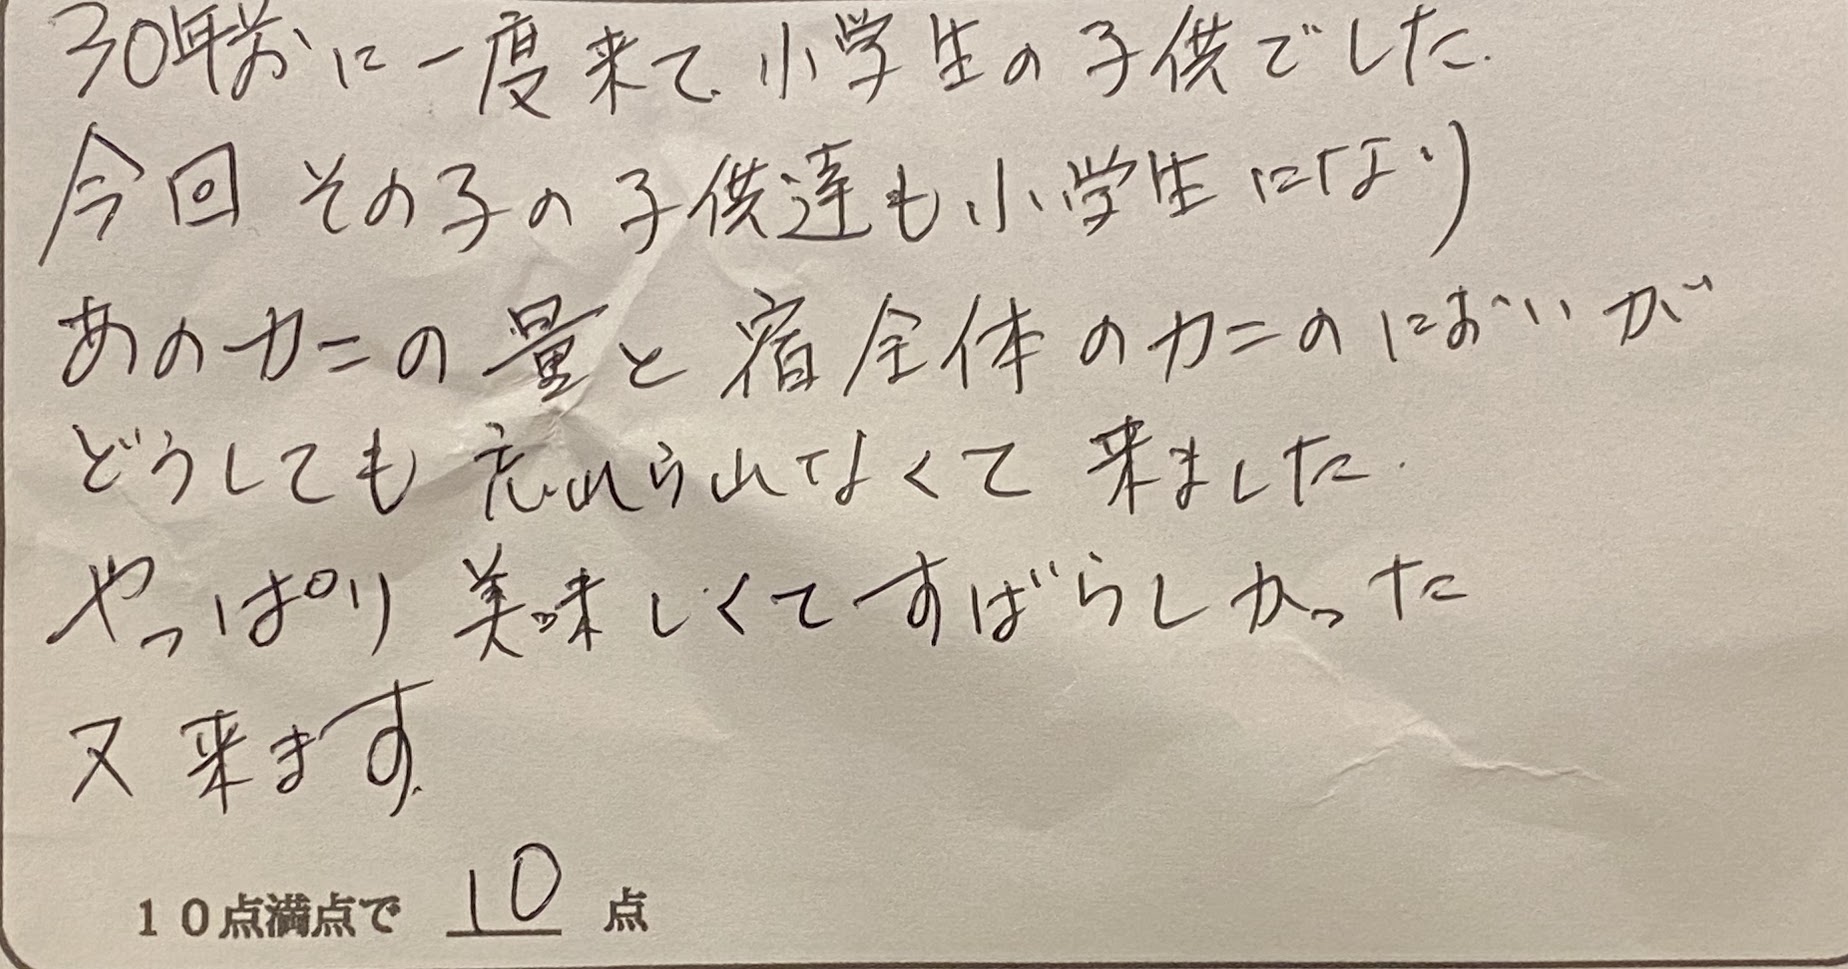 30年前に一度来て、小学生の子供でした.
今回 その子の子供達も小学生になり
あのカニの量と宿全体のカニのにおいが
どうしても 忘れられなくて 来ました.
やっぱり 美味しくてすばらしかった
又来ます.
10点満点で 10 点